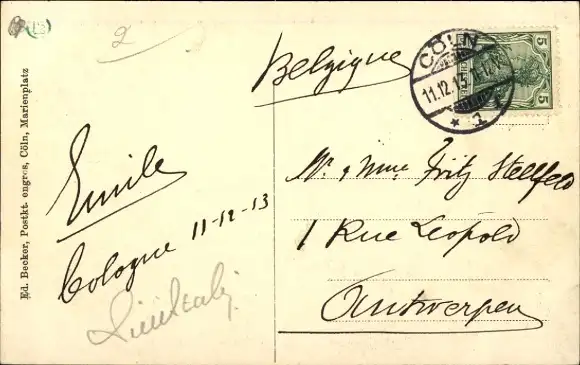 2
Ed. Becker, Postkt. engros, Cöln, Marienplatz
Emile
Cologne 11-12-13
Belgique
CÖLN
11.12.13. 11-12
* 1
5
5
Mr & Mme Fritz Stellfeld
1 Rue Leopold
Antwerpen